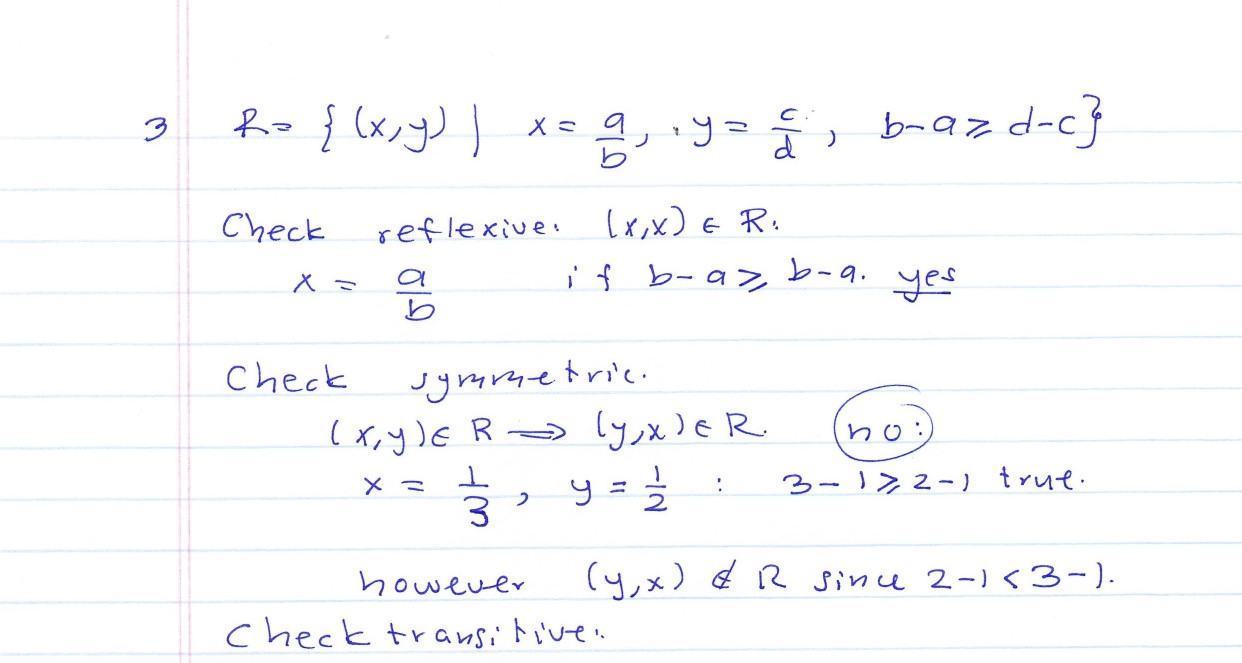 3 R = { (x,y) | x = a/b, y = c/d, b-a ⩾ d-c}
Check reflexive. (x,x) ∈ R.
x = a/b if b-a ⩾ b-a. yes
Check symmetric.
(x,y) ∈ R ⟹ (y,x) ∈ R. no:
x = 1/3, y = 1/2 : 3-1 ⩾ 2-1 true.
however (y,x) ∉ R since 2-1 < 3-1.
Check transitive.